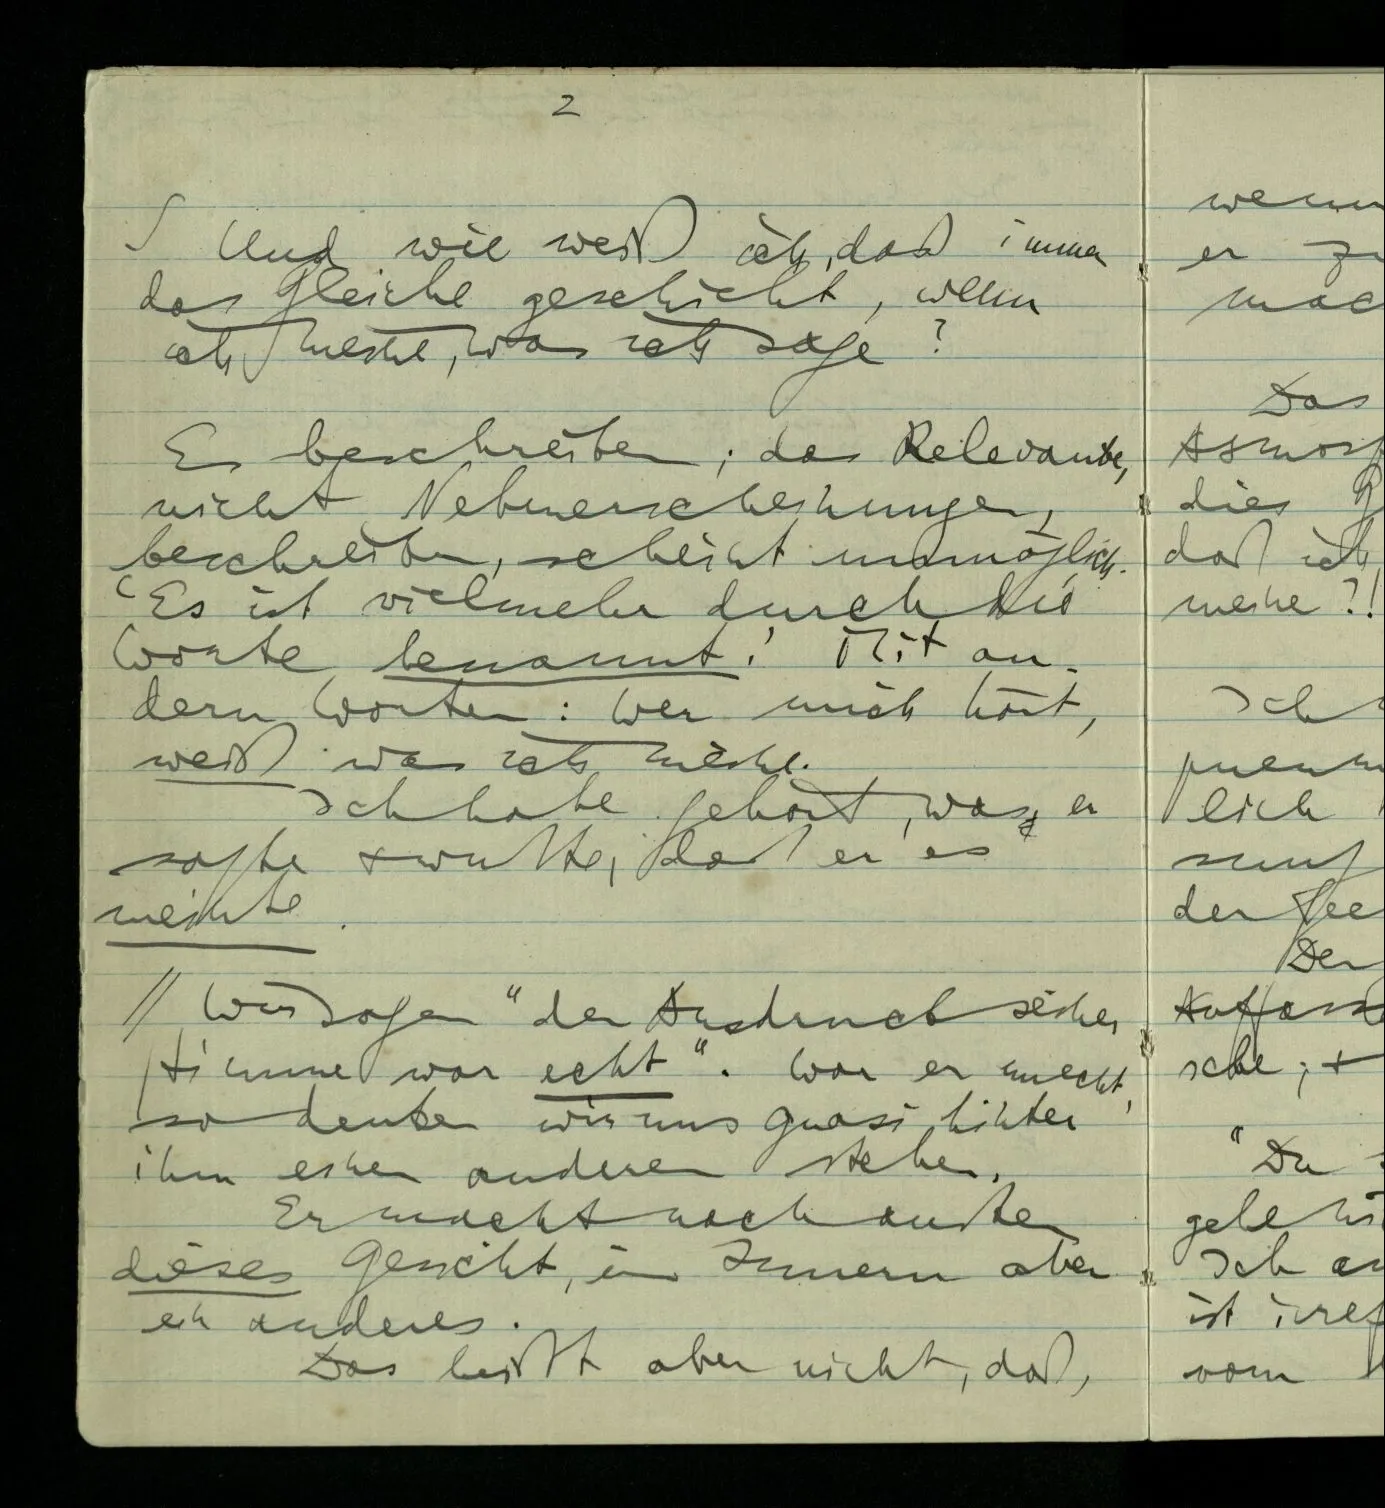 2
∫ Und wie weiß ich, daß immer
das Gleiche geschieht, wenn
ich meine, was ich sage?
Es beschreiben, das Relevante,
nicht Nebenerscheinungen,
beschreiben, scheint unmöglich.
"Es ist vielmehr durch die
Worte benannt! Mit an-
dern Worten: Wer mich hört,
weiß was ich meine.
Ich habe gehört, was er
sagte + wußte, daß er es
meinte.
// Wir sagen "der Ausdruck seiner
Stimme war echt". War er unecht,
so denken wir uns quasi hinter
ihm einen anderen stehen.
Er macht nach außen
dieses Gesicht, im Innern aber
ein anderes.
Das heißt aber nicht, daß,
wenn
er
Das
dies
daß ich
meine?!
Ich
lich
der
Der
sche; +
"Du
Ich
ist
vom